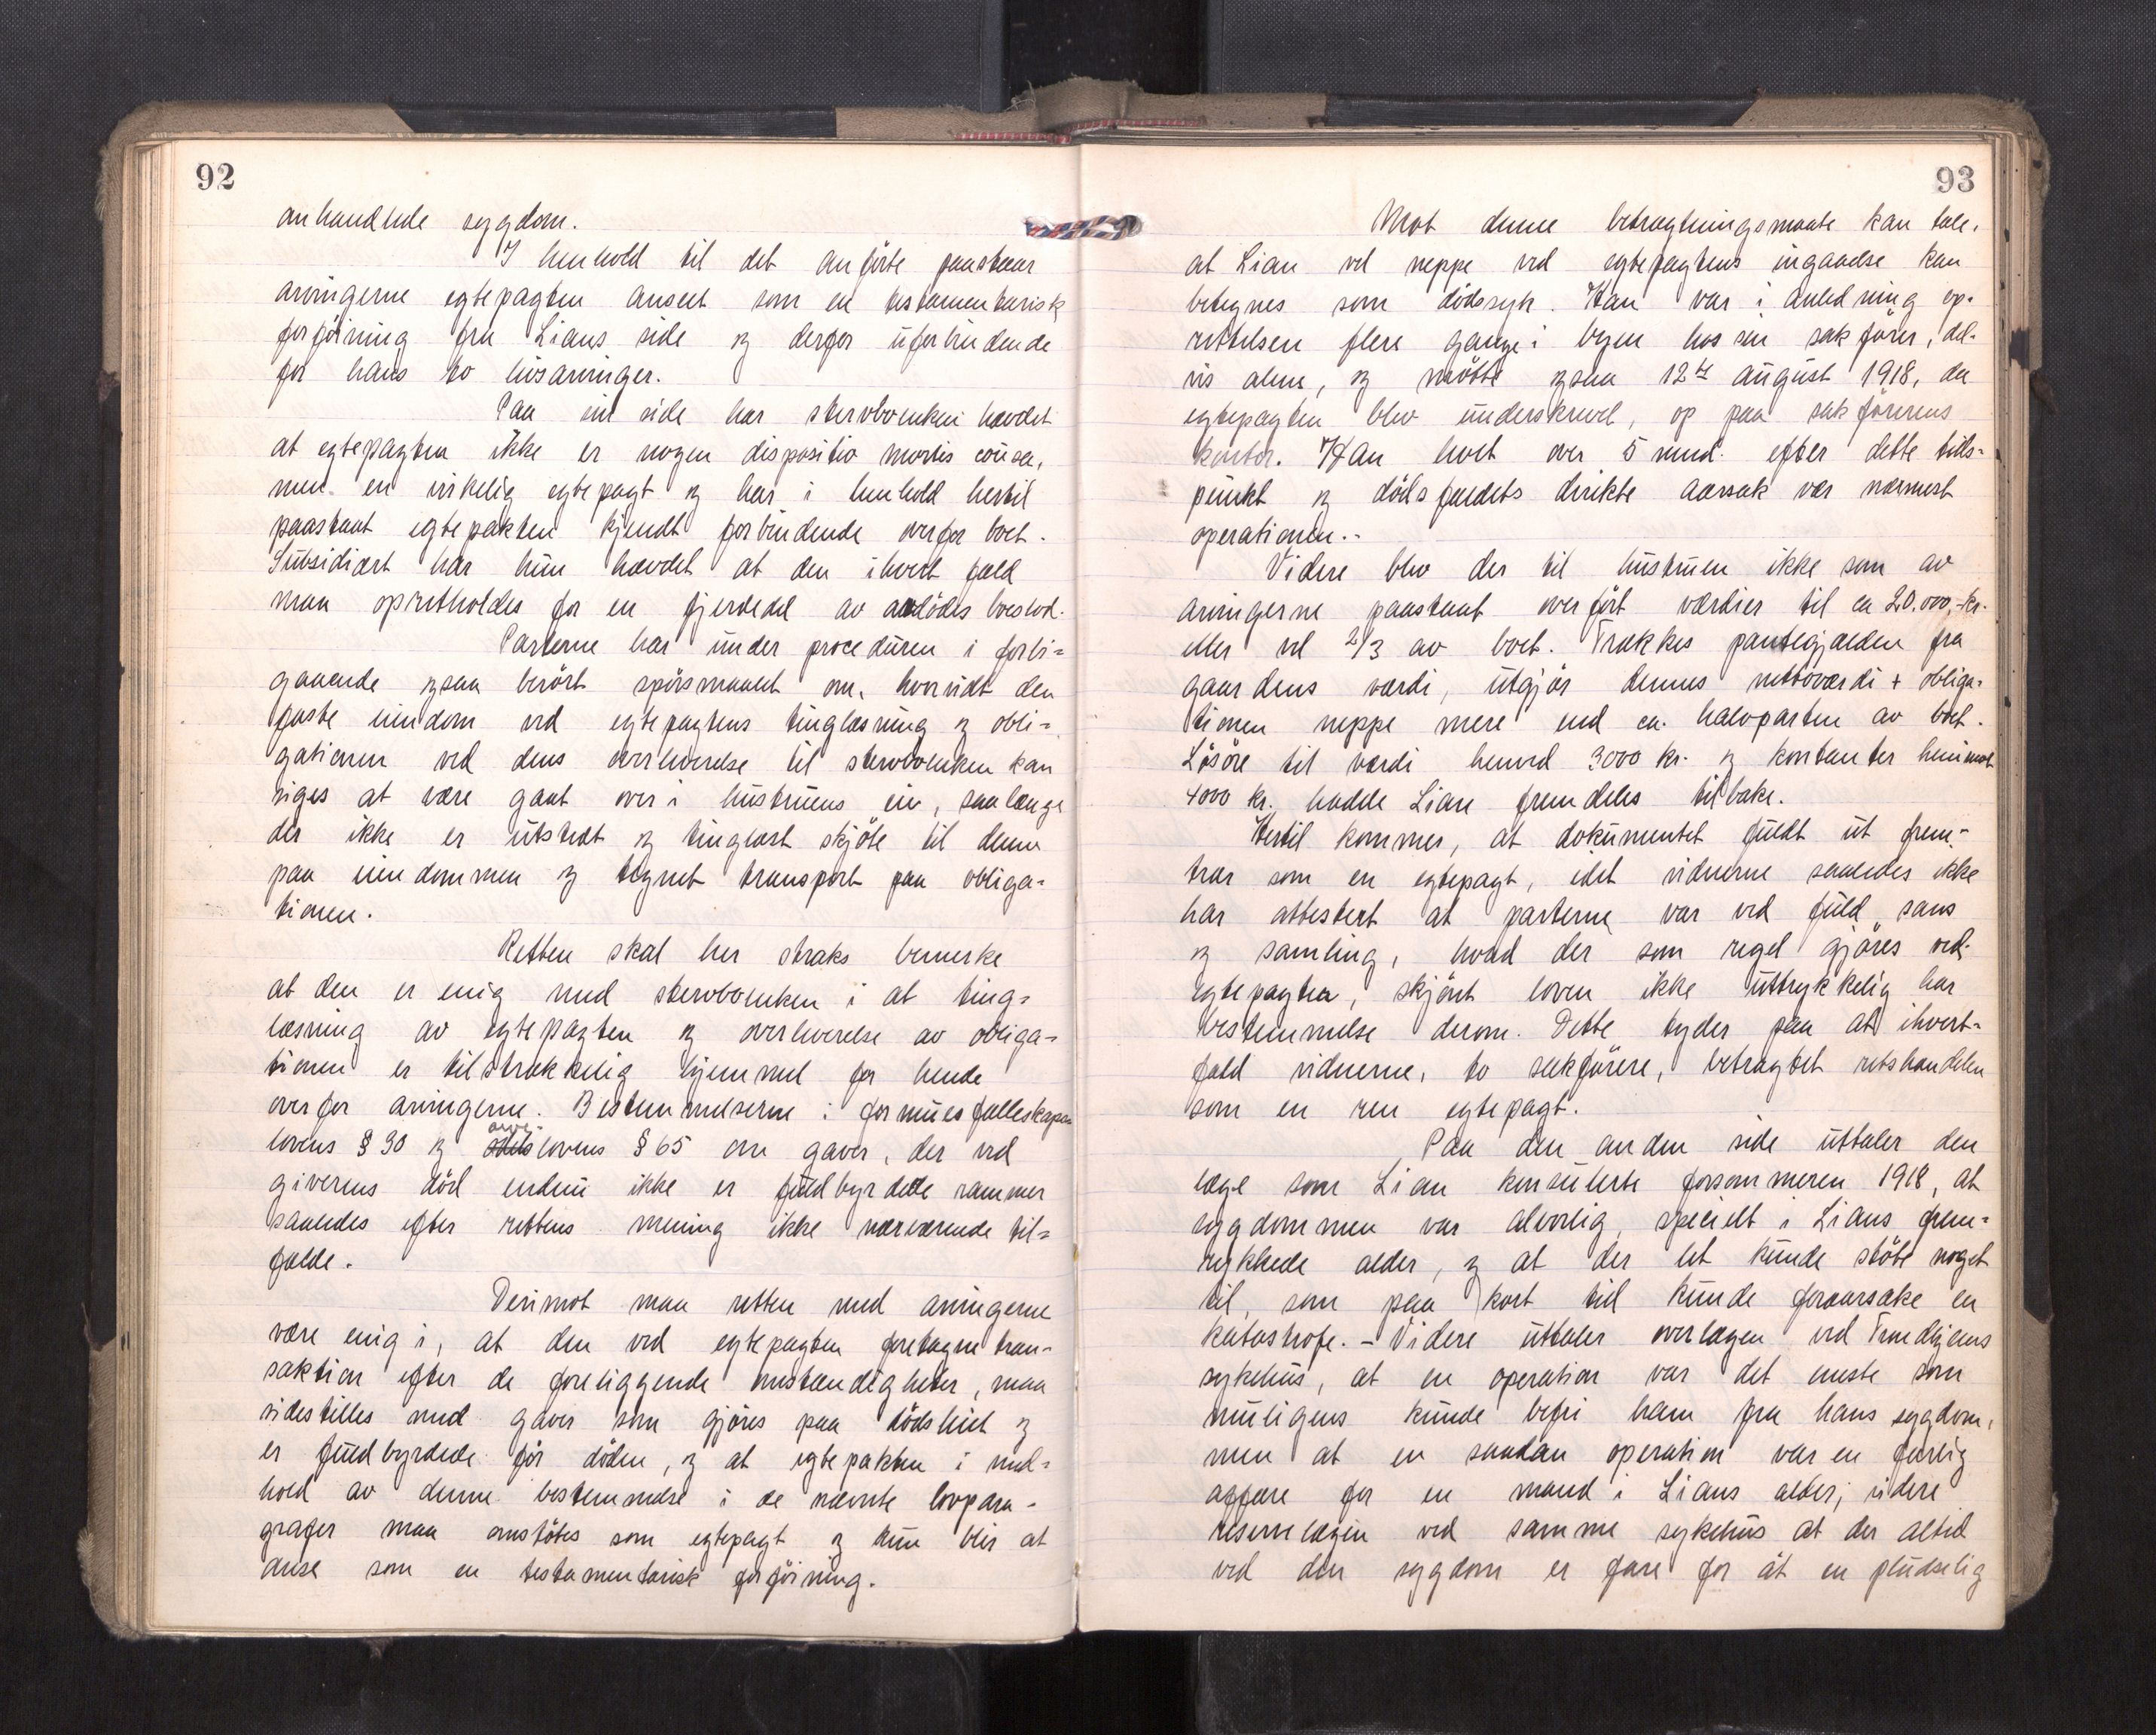 92
anhandlede sygdom.
I henhold til det anførte paastaar
arvingerne egtepagten anseet som en testamentarisk
forføining fra Lians side og derfor uforbindende
for hans to livsarvinger.
Paa sin side har stervboenken hævdet
at egtepagten ikke er nogen dispositio mortis causa,
men en virkelig egtepagt og har i henhold hertil
paastaat egtepakten kjendt forbindende overfor boet.
Subsidiært har hun hævdet at den ihvert fald
maa opretholdes for en fjerdedel av avdødes boeslod.
Parterne har under proceduren i forbi=
gaaende ogsaa berørt spørsmaalet om, hvorvidt den
faste eiendom ved egtepagtens tinglæsning og obli=
gationen ved dens overleverelse til stervboenken kan
siges at være gaat over i hustruens eie, saalænge
der ikke er utstedt og tinglæst skjøte til denne
paa eiendommen og tegnet transport paa obliga=
tionen.
Retten skal her straks bemerke
at den er enig med stervboenken i at ting=
læsning av egtepagten og overleverelse av obliga=
tionen er tilstrækkelig hjemmel for hende
overfor arvingerne. Bestemmelserne i formuesfælleskaps
lovens § 30 og arve-lovens § 65 om gaver, der ved
giverens død endnu ikke er fuldbyrdede rammer
saaledes efter rettens mening ikke nærværende til=
fælde.
Derimot maa retten med arvingerne
være enig i, at den ved egtepagten foretagne tran-
saktion efter de foreliggende omstændigheter, maa
sidestilles med gaver som gjøres paa dødsleiet og
er fuldbyrdede før døden, og at egtepakten i med=
hold av denne bestemmelse i de nævnte lovpara-
grafer maa omstøtes som egtepagt og kun blir at
anse som en testamentarisk forføining.
93
Mot denne betragtningsmaate kan tale,
at Lian vel neppe ved egtepagtens ingaaelse kan
betegnes som dødssyk. Han var i anledning op-
rettelsen flere gange i byen hos sin sakfører, del-
vis alene, og møtte ogsaa 12te august 1918, da
egtepagten blev underskrevet, op paa sakførerens
kontor. Han levet over 5 mnd. efter dette tids=
punkt og dødsfaldets direkte aarsak var nærmest
operationen.-
Videre blev der til hustruen ikke som av
arvingerne paastaat overført værdier til ca 20.000,- kr.
eller vel 2/3 av boet. Trækkes pantegjælden fra
gaardens værdi, utgjør dennes nettoværdi + obliga=
tionen neppe mere end ca. halvparten av boet.
Løsøre til værdi henved 3000 kr. og kontanter henimot
4000 kr. hadde Lian fremdeles tilbake.
Hertil kommer, at dokumentet fuldt ut frem-
trær som en egtepagt, idet vidnerne saaledes ikke
har attestert at parterne var ved fuld sans
og samling, hvad der som regel gjøres ved
egtepagter, skjønt loven ikke uttrykkelig har
bestemmelse derom. Dette tyder paa at ihvert=
fald vidnerne, to sakførere, betragtet retshandelen
som en ren egtepagt.
Paa den anden side uttaler den
læge som Lian konsulerte forsommeren 1918, at
sygdommen var alvorlig, specielt i Lians frem=
rykkede alder, og at der let kunde støte noget
til, som paa kort tid kunde foraarsake en
katastrofe. - Videre uttaler overlægen ved Trondhjems
sykehus, at en operation var det eneste som
muligens kunde befri ham fra hans sygdom,
men at en saadan operation var en farlig
affære for en mand i Lians alder; videre
reservelægen ved samme sykehus at der altid
ved den sygdom er fare for at en pludselig